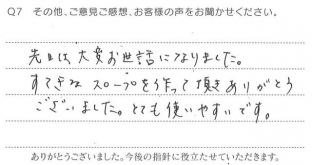 Q7 その他、ご意見ご感想、お客様の声をお聞かせください。
先日は大変お世話になりました。
すてきなスロープを作って頂きありがとう
ございました。とても使いやすいです。
ありがとうございました。今後の指針に役立たせていただきます。